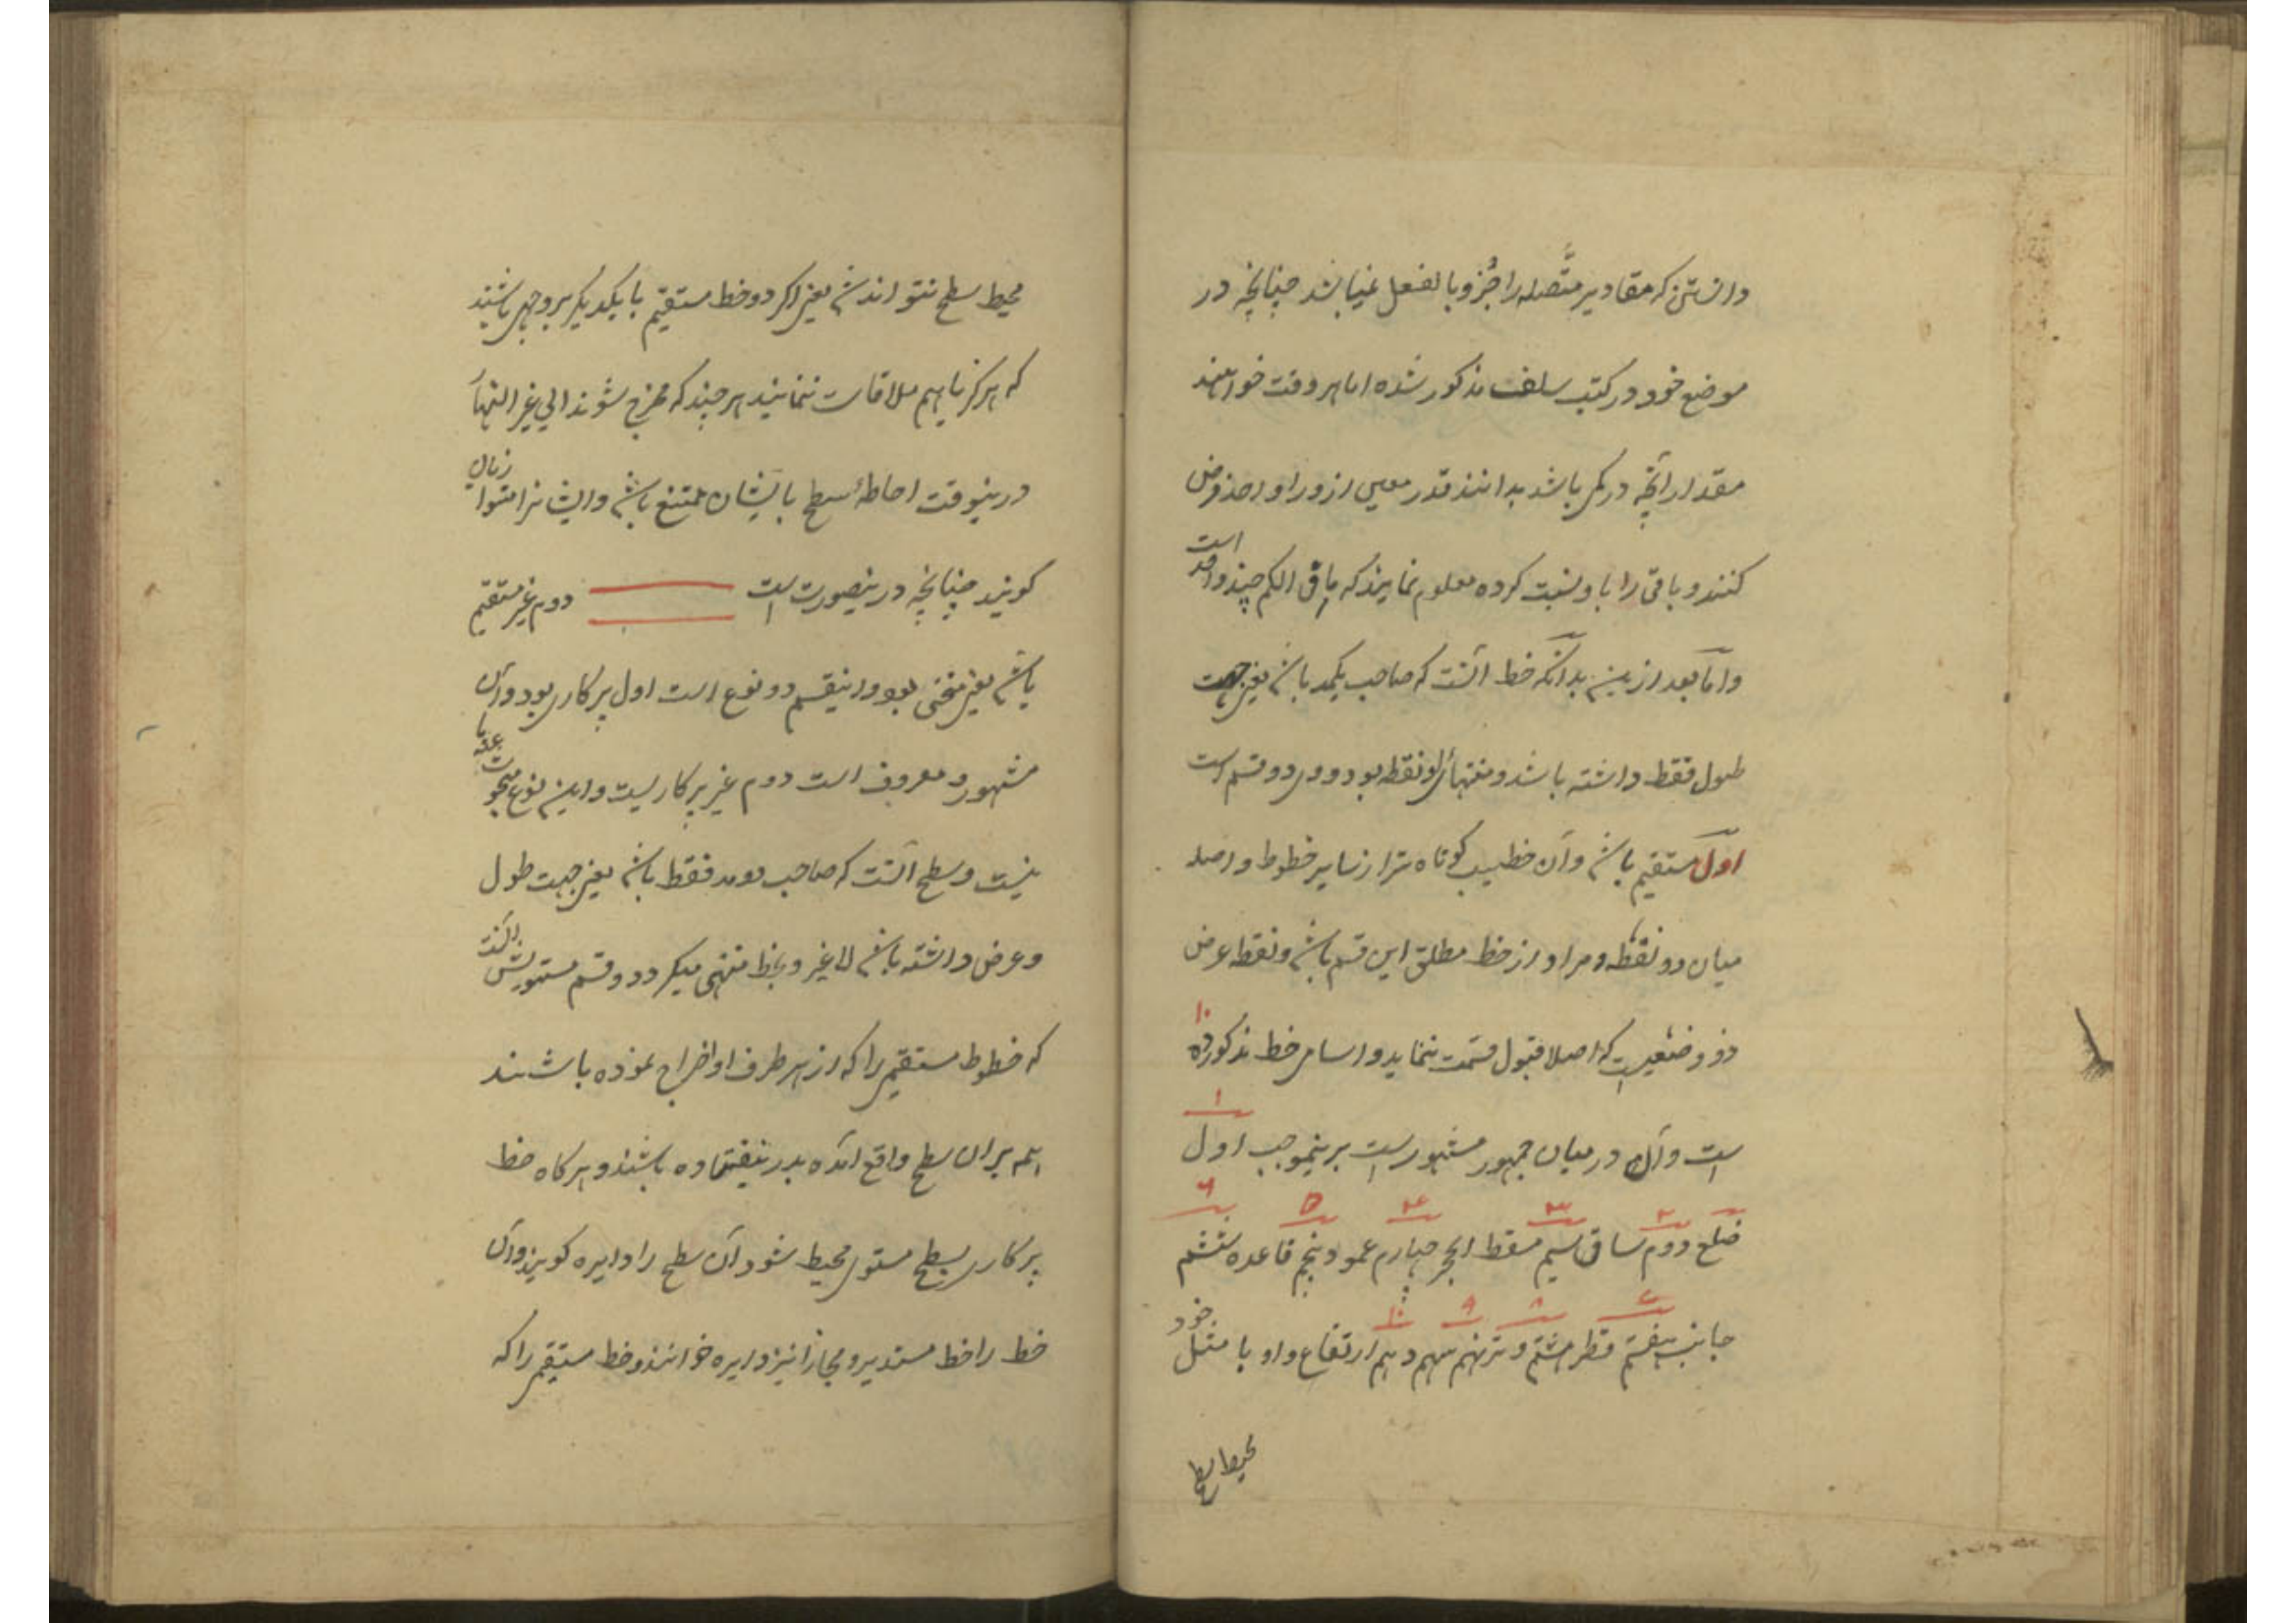 دانستن که مقادیر متّصله را جُزو بالفعل نمیباشد چنانچه در
موضع خود در کتب سلف مذکور شده اما هر وقت خواهند
مقدار آنچه در یکی باشد بدانند قدر معین ازو را واحد فرض
کنند و باقی را باو نسبت کرده معلوم نمایند که باقی الکم چند واحد است
وامّا بعد ازین بدانکه خط آنست که صاحب یکبعد باشد یعنی جهت
طول فقط داشته باشد و منتهای او نقطه بود و وی دو قسم است
اوّل مستقیم باشد وآن خطیست کوتاه تر از سایر خطوط واصله
میان دو نقطه و مراد از خط مطلق این قسم باشد و نقطه عرض
ذو وضعیست که اصلا قبول قسمت ننماید و اسامی خط مذکور ده ۱۰
است وآن در میان جمهور مشهور است برینموجب اول ۱
ضلع دووم ۲ ساق سیم ۳ مسقط الحجر چهارم ۴ عمود پنجم ۵ قاعده ششم ۶
جانب هفتم ۷ قطر هشتم ۸ وتر نهم ۹ سهم دهم ۱۰ ارتفاع و او با مثل خود
محیط سطح
محیط سطح نتواند شد یعنی اکر دو خط مستقیم با یکدیکر بر وجهی باشند
که هرکز باهم ملاقات ننمایند هر چند که مخرج شوند الی غیر النهایه
درینوقت احاطهٔ سطح بایشان ممتنع باشد و ایشانرا متوازیان
کویند چنانچه درینصورت است دوم غیر مستقیم
باشد یعنی منحنی بود و اینقسم دو نوع است اول پرکاری بود وآن
مشهور و معروف است دوم غیر پرکاریست و این نوع مبحوث عنه ما
نیست و سطح آنست که صاحب دو بعد فقط باشد یعنی جهت طول
و عرض داشته باشد لا غیر و بخط منتهی میکردد و قسم مستویش آنست
که خطوط مستقیم را که از هر طرف او اخراج نموده باشند
همه بران سطح واقع آمده بدر نیفتاده باشند و هرکاه خط
پرکاری بسطح مستوی محیط شود آن سطح را دایره کویند وآن
خط را خط مستدیر و مجازا نیز دایره خوانند و خط مستقیم را که